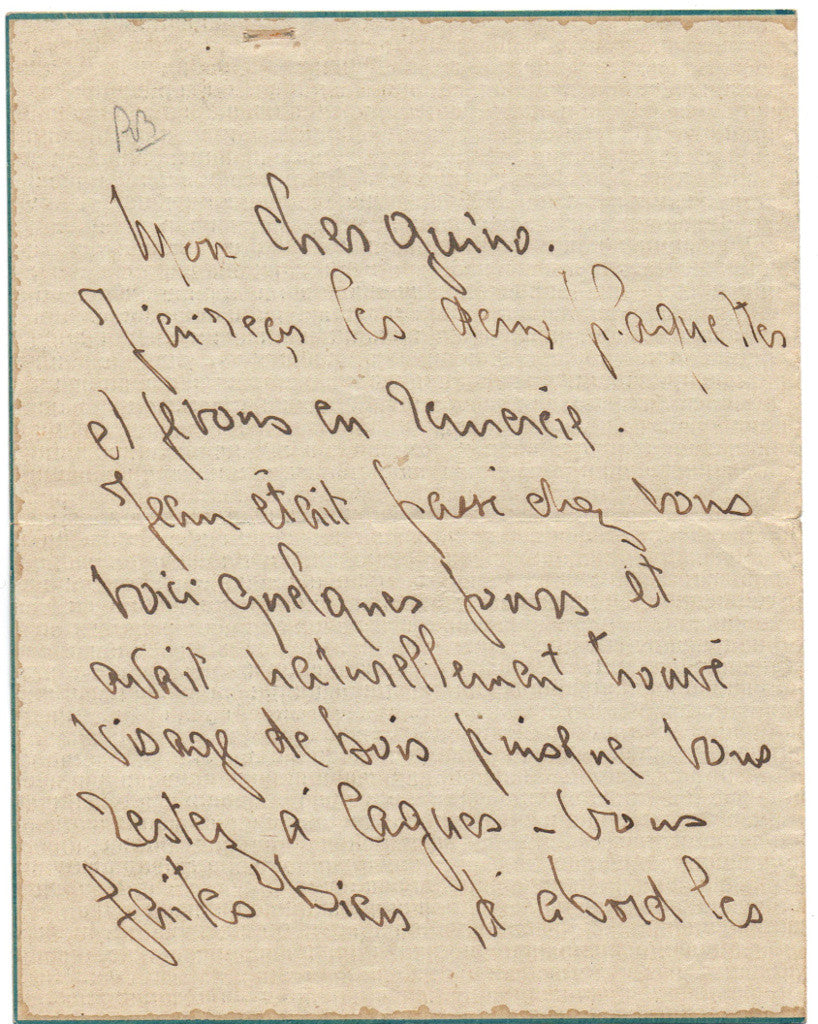 RB
Mon cher Guino.
J'ai reçu les deux paquettes
et je vous en remercie.
Jean était passé chez vous
voici quelques jours et
avait naturellement trouvé
visage de bois puisque vous
restez à Cagnes - Vous
faites bien, d'abord les